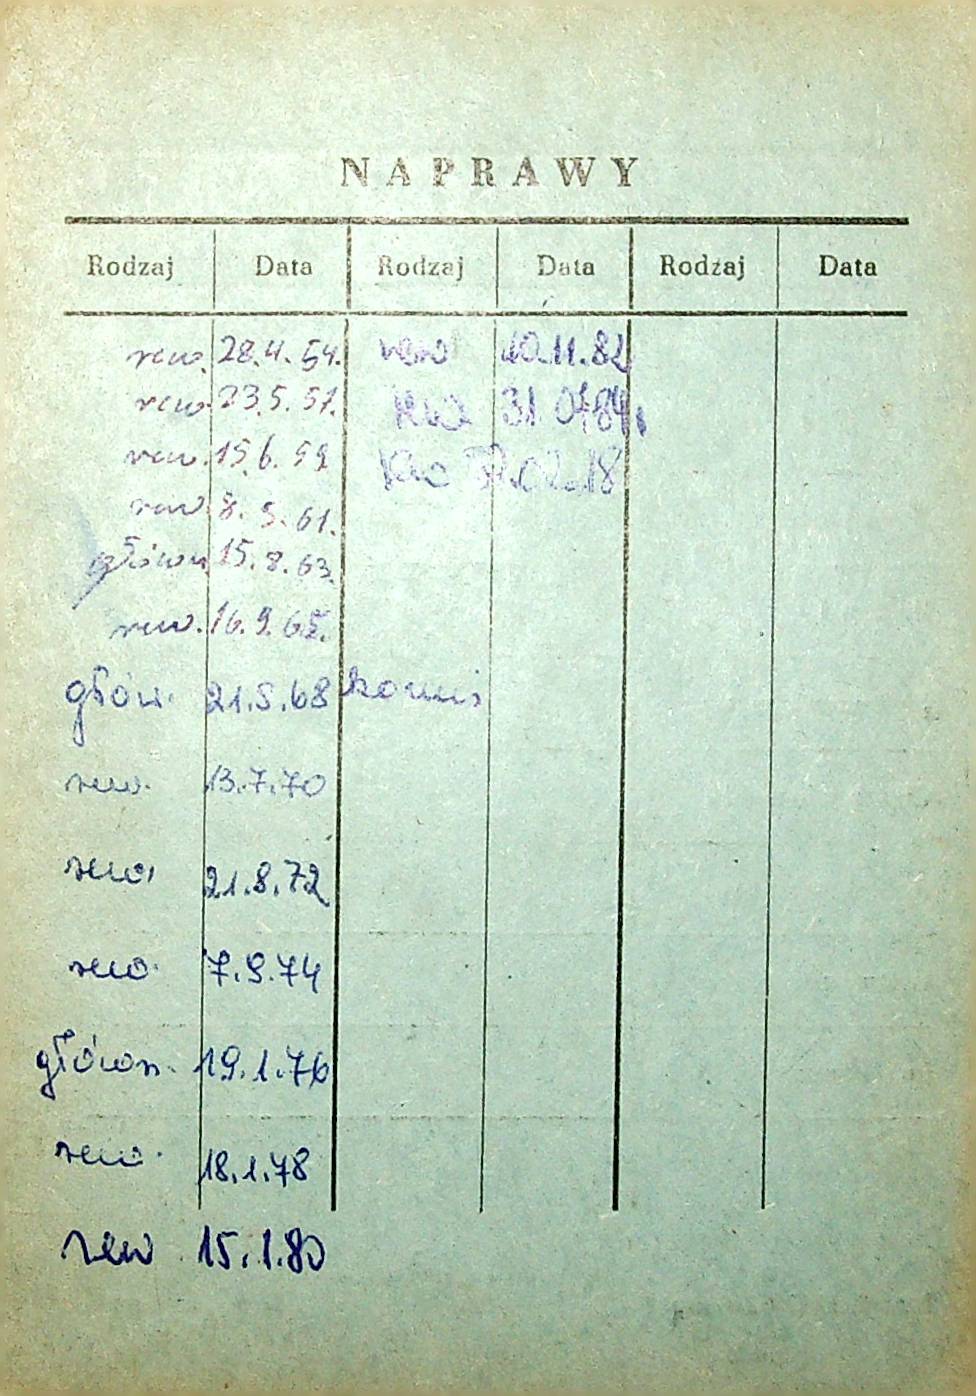 NAPRAWY
Rodzaj Data Rodzaj Data Rodzaj Data
rew. 28.4.54. rew 10.11.82
rew. 23.5.57. rew 31.0784.
rew. 15.6.59
rew. 8.5.61.
główn 15.8.63.
rew. 16.9.65.
głów. 21.5.68 komis
rew. 13.7.70
rew. 21.8.72
rew. 7.9.74
główn. 19.1.76
rew. 18.1.78
rew 15.1.80